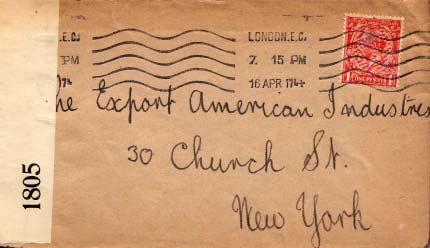 N.E.C. LONDON.E.C.
PM 7. 15 PM
174 16 APR 174
ONE PENNY
The Export American Industries
30 Church St.
New York
1805